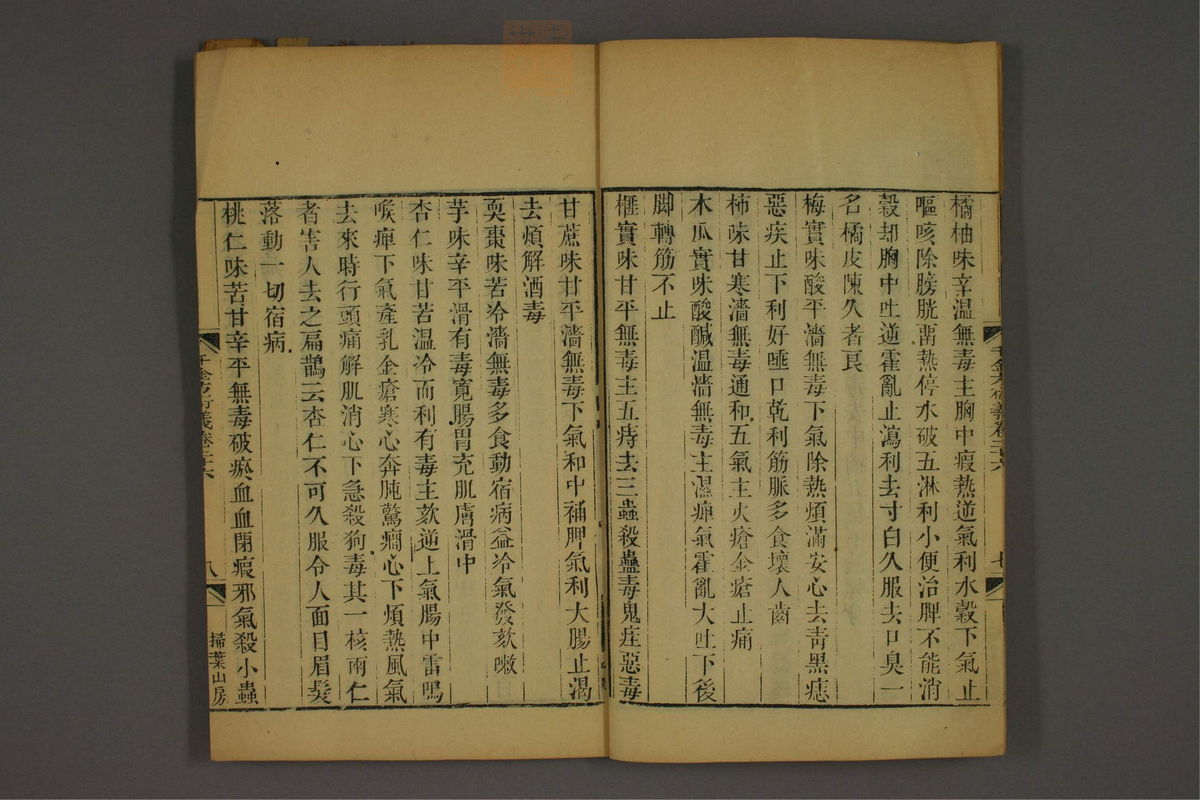 橘柚味辛温無毒主胸中瘕熱逆氣利水穀下氣止
嘔咳除膀胱畱熱停水破五淋利小便治脾不能消
穀却胸中吐逆霍亂止瀉利去寸白久服去口臭一
名橘皮陳久者良
梅實味酸平濇無毒下氣除熱煩滿安心去青黑痣
惡疾止下利好唾口乾利筋脈多食壞人齒
柿味甘寒濇無毒通和五氣主火瘡金瘡止痛
木瓜實味酸鹹温濇無毒主濕痺氣霍亂大吐下後
脚轉筋不止
榧實味甘平無毒主五痔去三蟲殺蠱毒鬼疰惡毒
千金方衍義卷二十六
七
甘蔗味甘平濇無毒下氣和中補脾氣利大腸止渴
去煩解酒毒
耎棗味苦冷濇無毒多食動宿病益冷氣發欬嗽
芋味辛平滑有毒寛腸胃充肌膚滑中
杏仁味甘苦温冷而利有毒主欬逆上氣腸中雷鳴
喉痺下氣產乳金瘡寒心奔肫驚癇心下煩熱風氣
去來時行頭痛解肌消心下急殺狗毒其一核兩仁
者害人去之扁鵲云杏仁不可久服令人面目眉髮
落動一切宿病
桃仁味苦甘辛平無毒破瘀血血閉瘕邪氣殺小蟲
千金方衍義卷二十六
八
掃葉山房